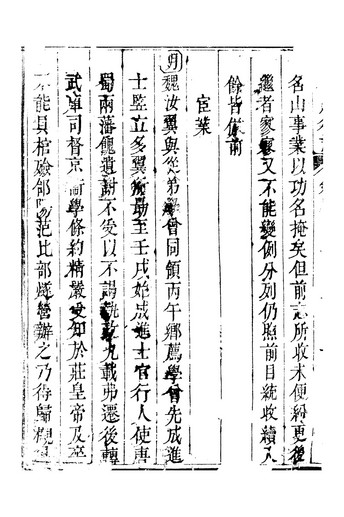 名山事業以功名掩矣但前志所收未便紛更後
繼者寥寥又不能變例分列仍照前目統收續入
餘皆倣前
宦業
明
魏汝翼與從弟學曾同領丙午鄉薦學曾先成進
士監立多翼至壬戌始成進士官行人使唐
蜀兩藩餽遺謝不受以不謁執政九載弗遷後轉
武庫司督京衞學條約精嚴受知於莊皇帝及卒
不能具棺殮部范比部燧營辦之乃得歸櫬